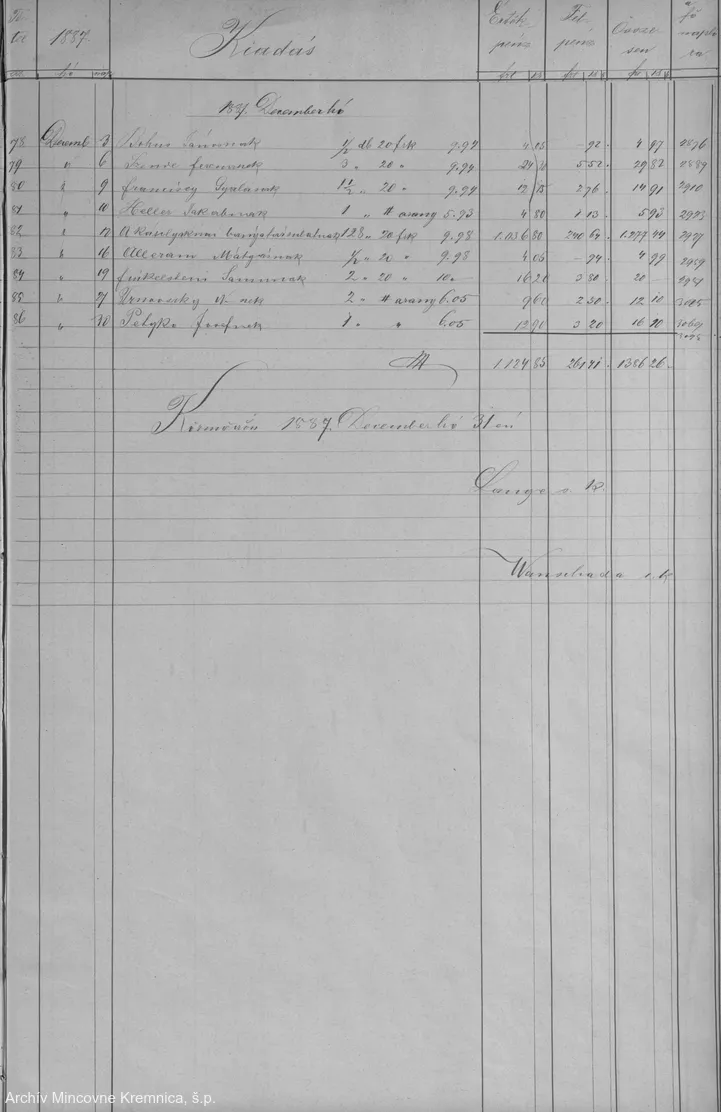 Té tel 1887. Kiadás Érték pénz Fel pénz Össze sen a fő napló ra
sz hó nap frt kr frt kr frt kr
1887. Decemberhó
78 Decemb 3 Böhm Jánosnak 1/2 db 20 frk 9.94 4 05 - 92 4 97 2876
79 " 6 Ferencnek 3 " 20 " 9.94 24 30 5 52 29 82 2889
80 " 9 Franciscy Gyulának 1 1/2 " 20 " 9.94 12 15 2 76 14 91 2910
81 " 10 Heller Jakabnak 1 " # arany 5.93 4 80 1 13 5 93 2923
82 " 12 A károlyaknai 128 " 20 frk 9.98 1.036 80 240 64 1.277 44 2927
83 " 16 Mátyásnak 1/2 " 20 " 9.98 4 05 - 94 4 99 2959
84 " 19 2 " 20 " 10 " 16 20 3 80 20 - 2981
85 " 27 nek 2 " # arany 6.05 9 60 2 50 12 10 3045
86 " 30 Petyko Josefnek 1 " " 6.05 12 90 3 20 16 10
1.124 85 261 41 1386 26
Körmöczön 1887. Decemberhó 31 én
Lange s. k.
Wanschada s. k.
Archív Mincovne Kremnica, š.p.